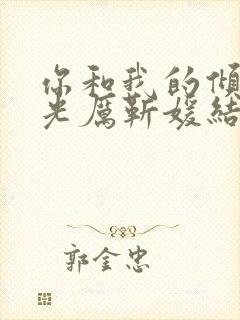 你和我的倾
光厲靳媛結
郭金忠